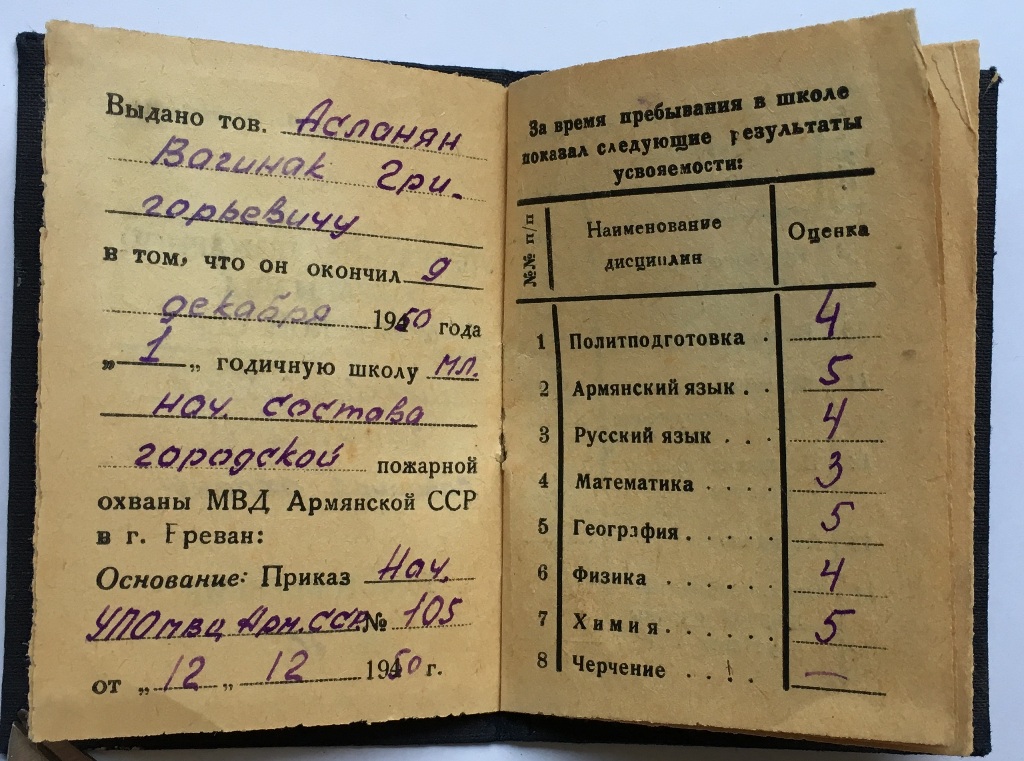 Выдано тов. Асланян
Вагинак Гри-
горьевичу
в том, что он окончил 9
декабря 1950 года
„ 1 „ годичную школу мл.
нач. состава
городской пожарной
охраны МВД Армянской ССР
в г. Ереван:
Основание: Приказ Нач.
УПО МВД Арм. ССР № 105
от „ 12 „ 12 1950 г.
За время пребывания в школе
показал следующие результаты
усвояемости:
№№ п/п Наименование дисциплин Оценка
1 Политподготовка . 4
2 Армянский язык . . 5
3 Русский язык . . . 4
4 Математика . . . . 3
5 География . . . . . 5
6 Физика . . . . . 4
7 Химия . . . . . . 5
8 Черчение . . . . —